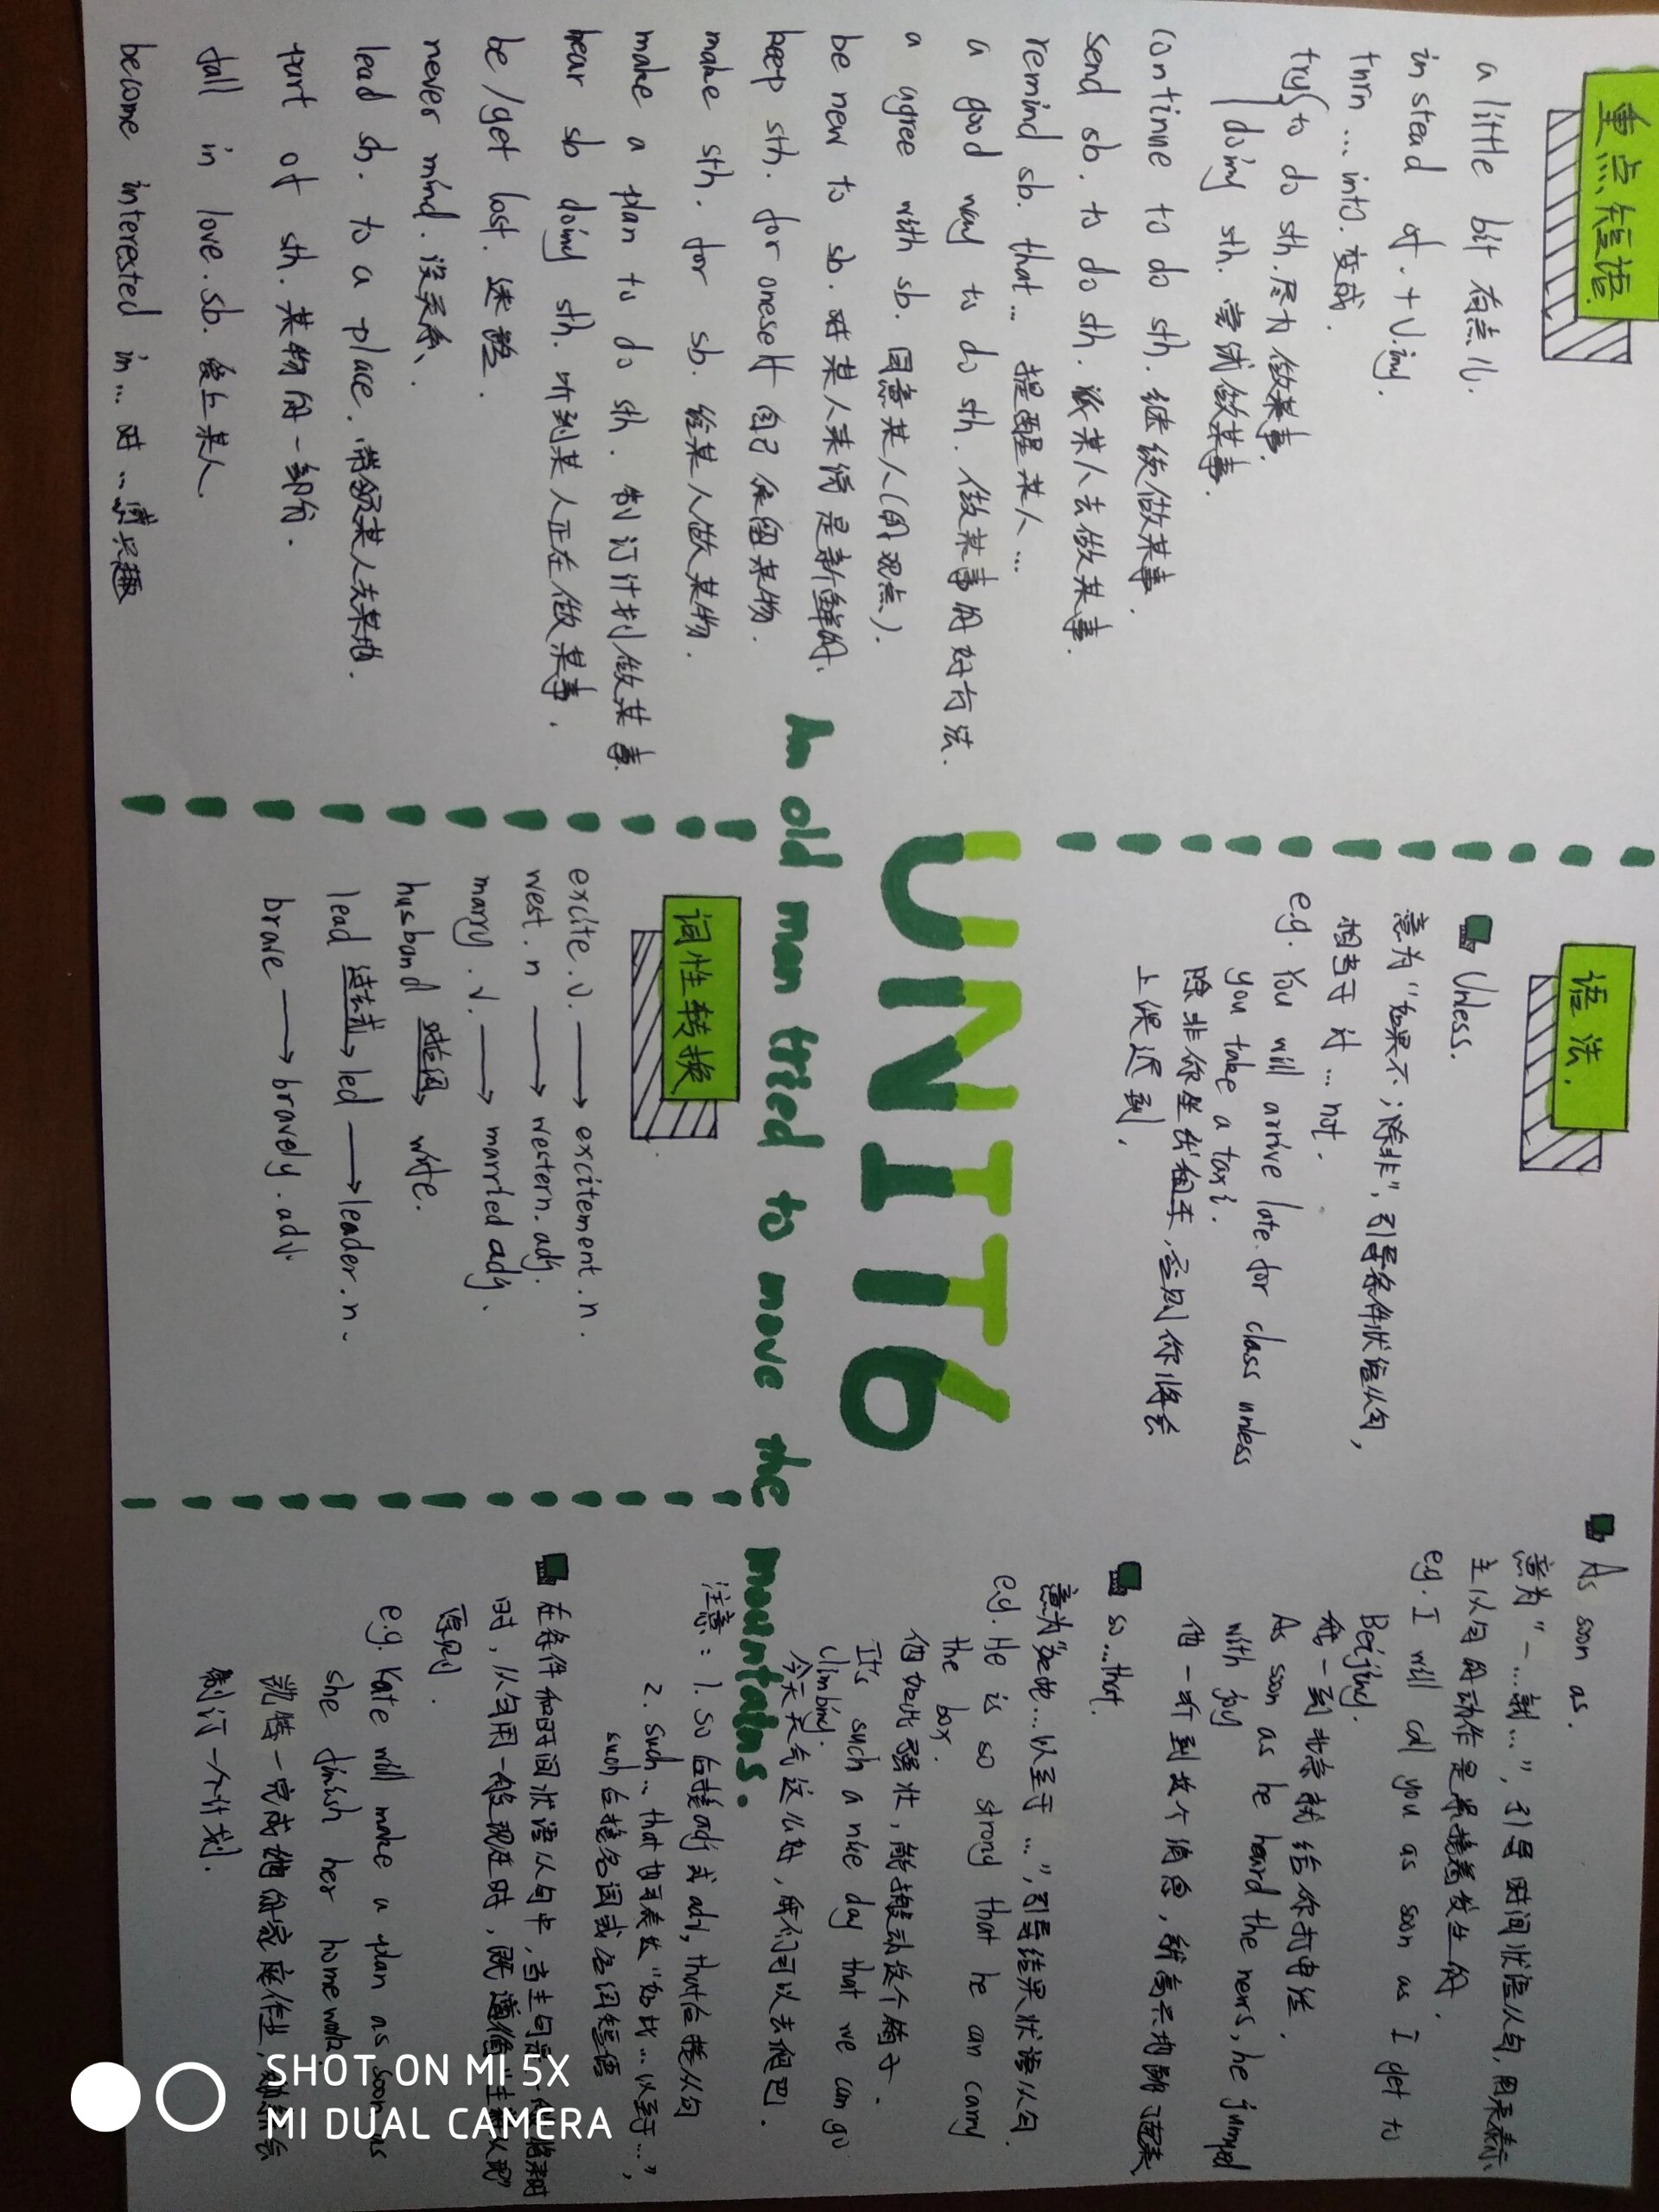 重点短语.
a little bit 有点儿.
instead of. + V.ing.
turn ... into. 变成.
try to do sth. 尽力做某事.
doing sth. 尝试做某事.
continue to do sth. 继续做某事.
send sb. to do sth. 派某人去做某事.
remind sb. that... 提醒某人...
a good way to do sth. 做某事的好方法.
a agree with sb. 同意某人(的观点).
be new to sb. 对某人来说是新鲜的.
keep sth. for oneself 自己保留某物.
make sth. for sb. 给某人做某物.
make a plan to do sth. 制订计划做某事.
hear sb doing sth. 听到某人正在做某事.
be/get lost. 迷路.
never mind. 没关系.
lead sb. to a place. 带领某人去某地.
part of sth. 某物的一部份.
fall in love. sb. 爱上某人.
become interested in... 对...感兴趣
UNIT6
An old man tried to move the mountains.
语法.
Unless.
意为“如果不;除非”, 引导条件状语从句,
相当于 if ... not.
e.g. You will arrive late for class unless
you take a taxi.
除非你坐出租车, 否则你将会
上课迟到.
词性转换
excite.v. → excitement.n.
west.n → western.adj.
marry.v. → married adj.
husband 对应词→ wife.
lead 过去式→ led → leader.n.
brave → bravely.adv.
As soon as.
意为“一...就...”, 引导时间状语从句, 用来表示
主从句的动作是紧接着发生的.
e.g. I will call you as soon as I get to
Beijing.
我一到北京就给你打电话.
As soon as he heard the news, he jumped
with joy
他一听到这个消息, 就高兴地跳了起来
so...that.
意为“如此...以至于...”, 引导结果状语从句.
e.g. He is so strong that he can carry
the box.
他如此强壮, 能搬动这个箱子.
It's such a nice day that we can go
climbing.
今天天气这么好, 我们可以去爬山.
注意: 1. so后接adj或adv, that后接从句
2. such...that也可表达“如此...以至于...”,
such后接名词或名词短语
在条件和时间状语从句中, 当主句是一般将来时
时, 从句用一般现在时, 既遵循“主将从现”
原则.
e.g. Kate will make a plan as soon as
she finish her homework.
凯特一完成她的家庭作业,
制订一个计划.
SHOT ON MI 5X
MI DUAL CAMERA